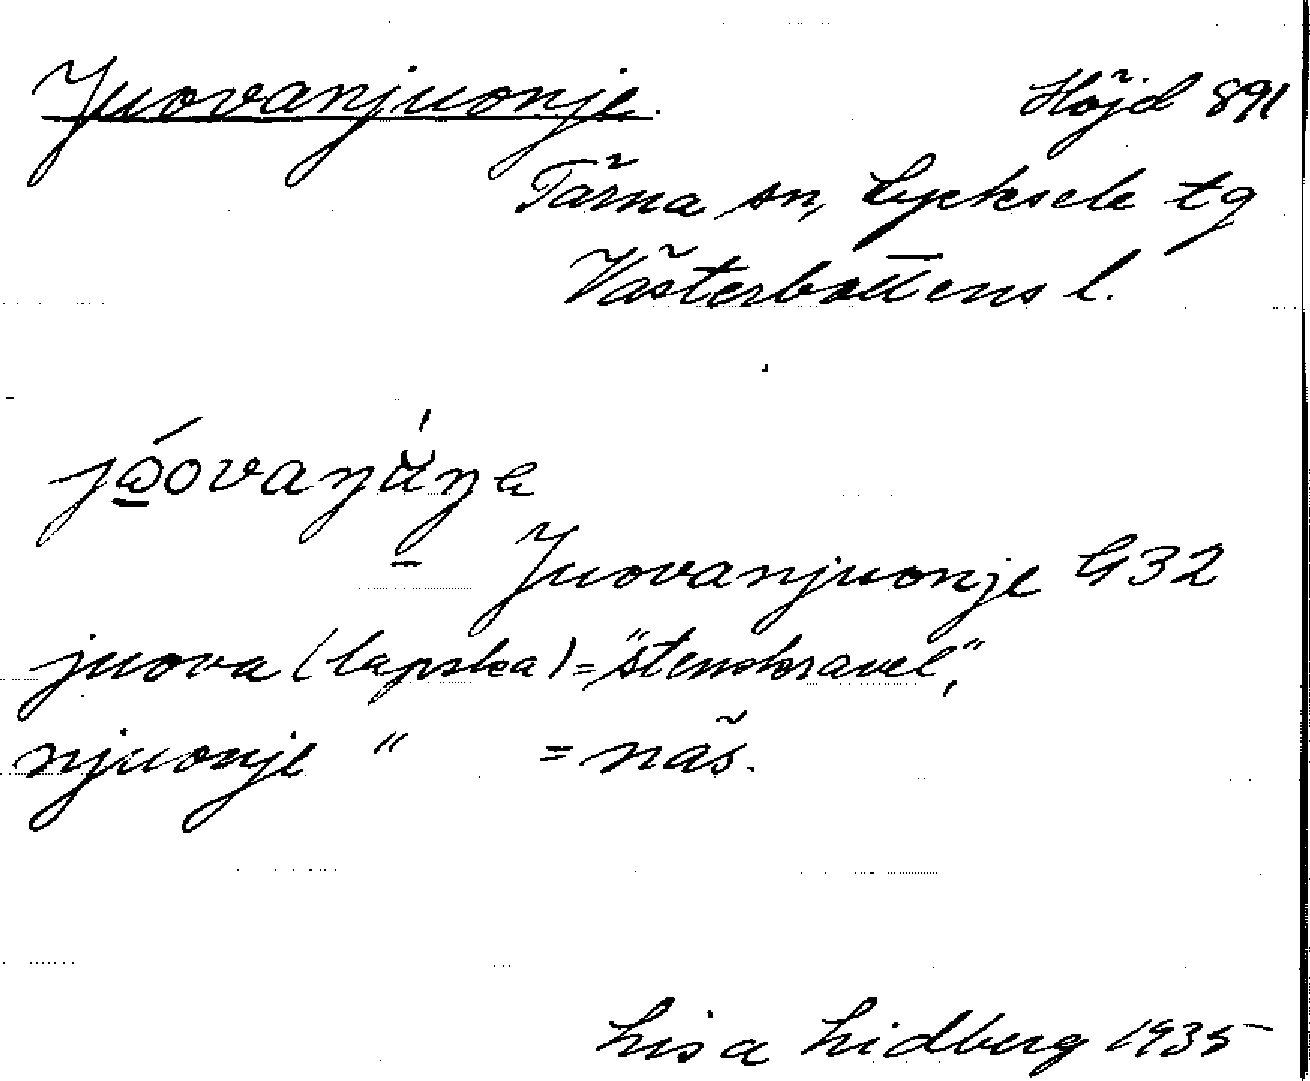 Juovanjuonje. Höjd 891
Tärna sn, Lycksele tg
Västerbottens l.
Juovanjuonje G32
juova (lapska) = "stenskravel",
njuonje " = näs.
Lisa Lidberg 1935